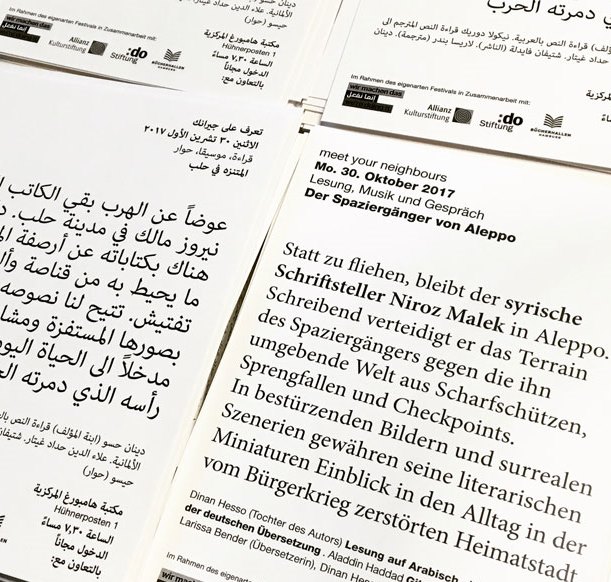 الألمانية. علاء الدين حداد غيتار.
حيسو (حوار)
مكتبة هامبورغ المركزية
Hühnerposten 1
الساعة ٧,٣٠ مساءً
الدخول مجاناً
بالتعاون مع:
Im Rahmen des eigenarten Festivals in Zusammenarbeit mit:
wir machen das
إننا نفعل
Allianz
Kulturstiftung
:do
Stiftung
BÜCHERHALLEN
HAMBURG
دمرته الحرب
قراءة النص بالعربية. نيكولا دوريك قراءة النص المترجم الى
حداد غيتار. شتيفان فايدلة (الناشر). لاريسا بندر (مترجمة). دينان
Im Rahmen des eigenarten Festivals in Zusammenarbeit mit:
wir machen das
إننا نفعل
Allianz
Kulturstiftung
:do
Stiftung
BÜCHERHALLEN
HAMBURG
تعرف على جيرانك
الاثنين ٣٠ تشرين الأول ٢٠١٧
قراءة، موسيقا، حوار
المتنزه في حلب
عوضاً عن الهرب بقي الكاتب
نيروز مالك في مدينة حلب.
هناك بكتاباته عن أرصفة
ما يحيط به من قناصة
تفتيش. تتيح لنا نصوصه
بصورها المستفزة
مدخلاً الى الحياة
رأسه الذي دمرته
دينان حسو (ابنة المؤلف) قراءة النص
الألمانية. علاء الدين حداد غيتار.
حيسو (حوار)
مكتبة هامبورغ المركزية
Hühnerposten 1
الساعة ٧,٣٠ مساءً
الدخول مجاناً
بالتعاون مع:
meet your neighbours
Mo. 30. Oktober 2017
Lesung, Musik und Gespräch
Der Spaziergänger von Aleppo
Statt zu fliehen, bleibt der syrische
Schriftsteller Niroz Malek in Aleppo.
Schreibend verteidigt er das Terrain
des Spaziergängers gegen die ihn
umgebende Welt aus Scharfschützen,
Sprengfallen und Checkpoints.
In bestürzenden Bildern und surrealen
Szenerien gewähren seine literarischen
Miniaturen Einblick in den Alltag in der
vom Bürgerkrieg zerstörten Heimatstadt
Dinan Hesso (Tochter des Autors) Lesung auf Arabisch.
der deutschen Übersetzung . Aladdin Haddad
Larissa Bender (Übersetzerin), Dinan
Im Rahmen des eigenarten Festivals in
wir machen das